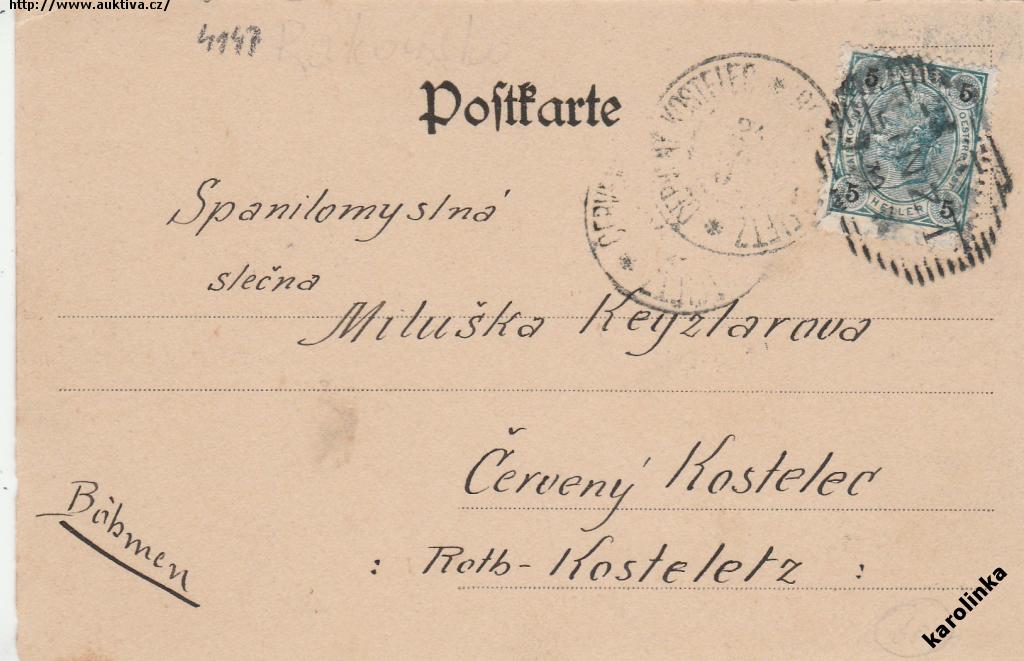 http://www.auktiva.cz/
4147
Postkarte
ČERVENÝ KOSTELEC
5 5
5 HELLER 5
Spanilomyslná
slečna
Miluška Keyzlarova
Červený Kostelec
Böhmen
: Roth-Kosteletz :
karolinka